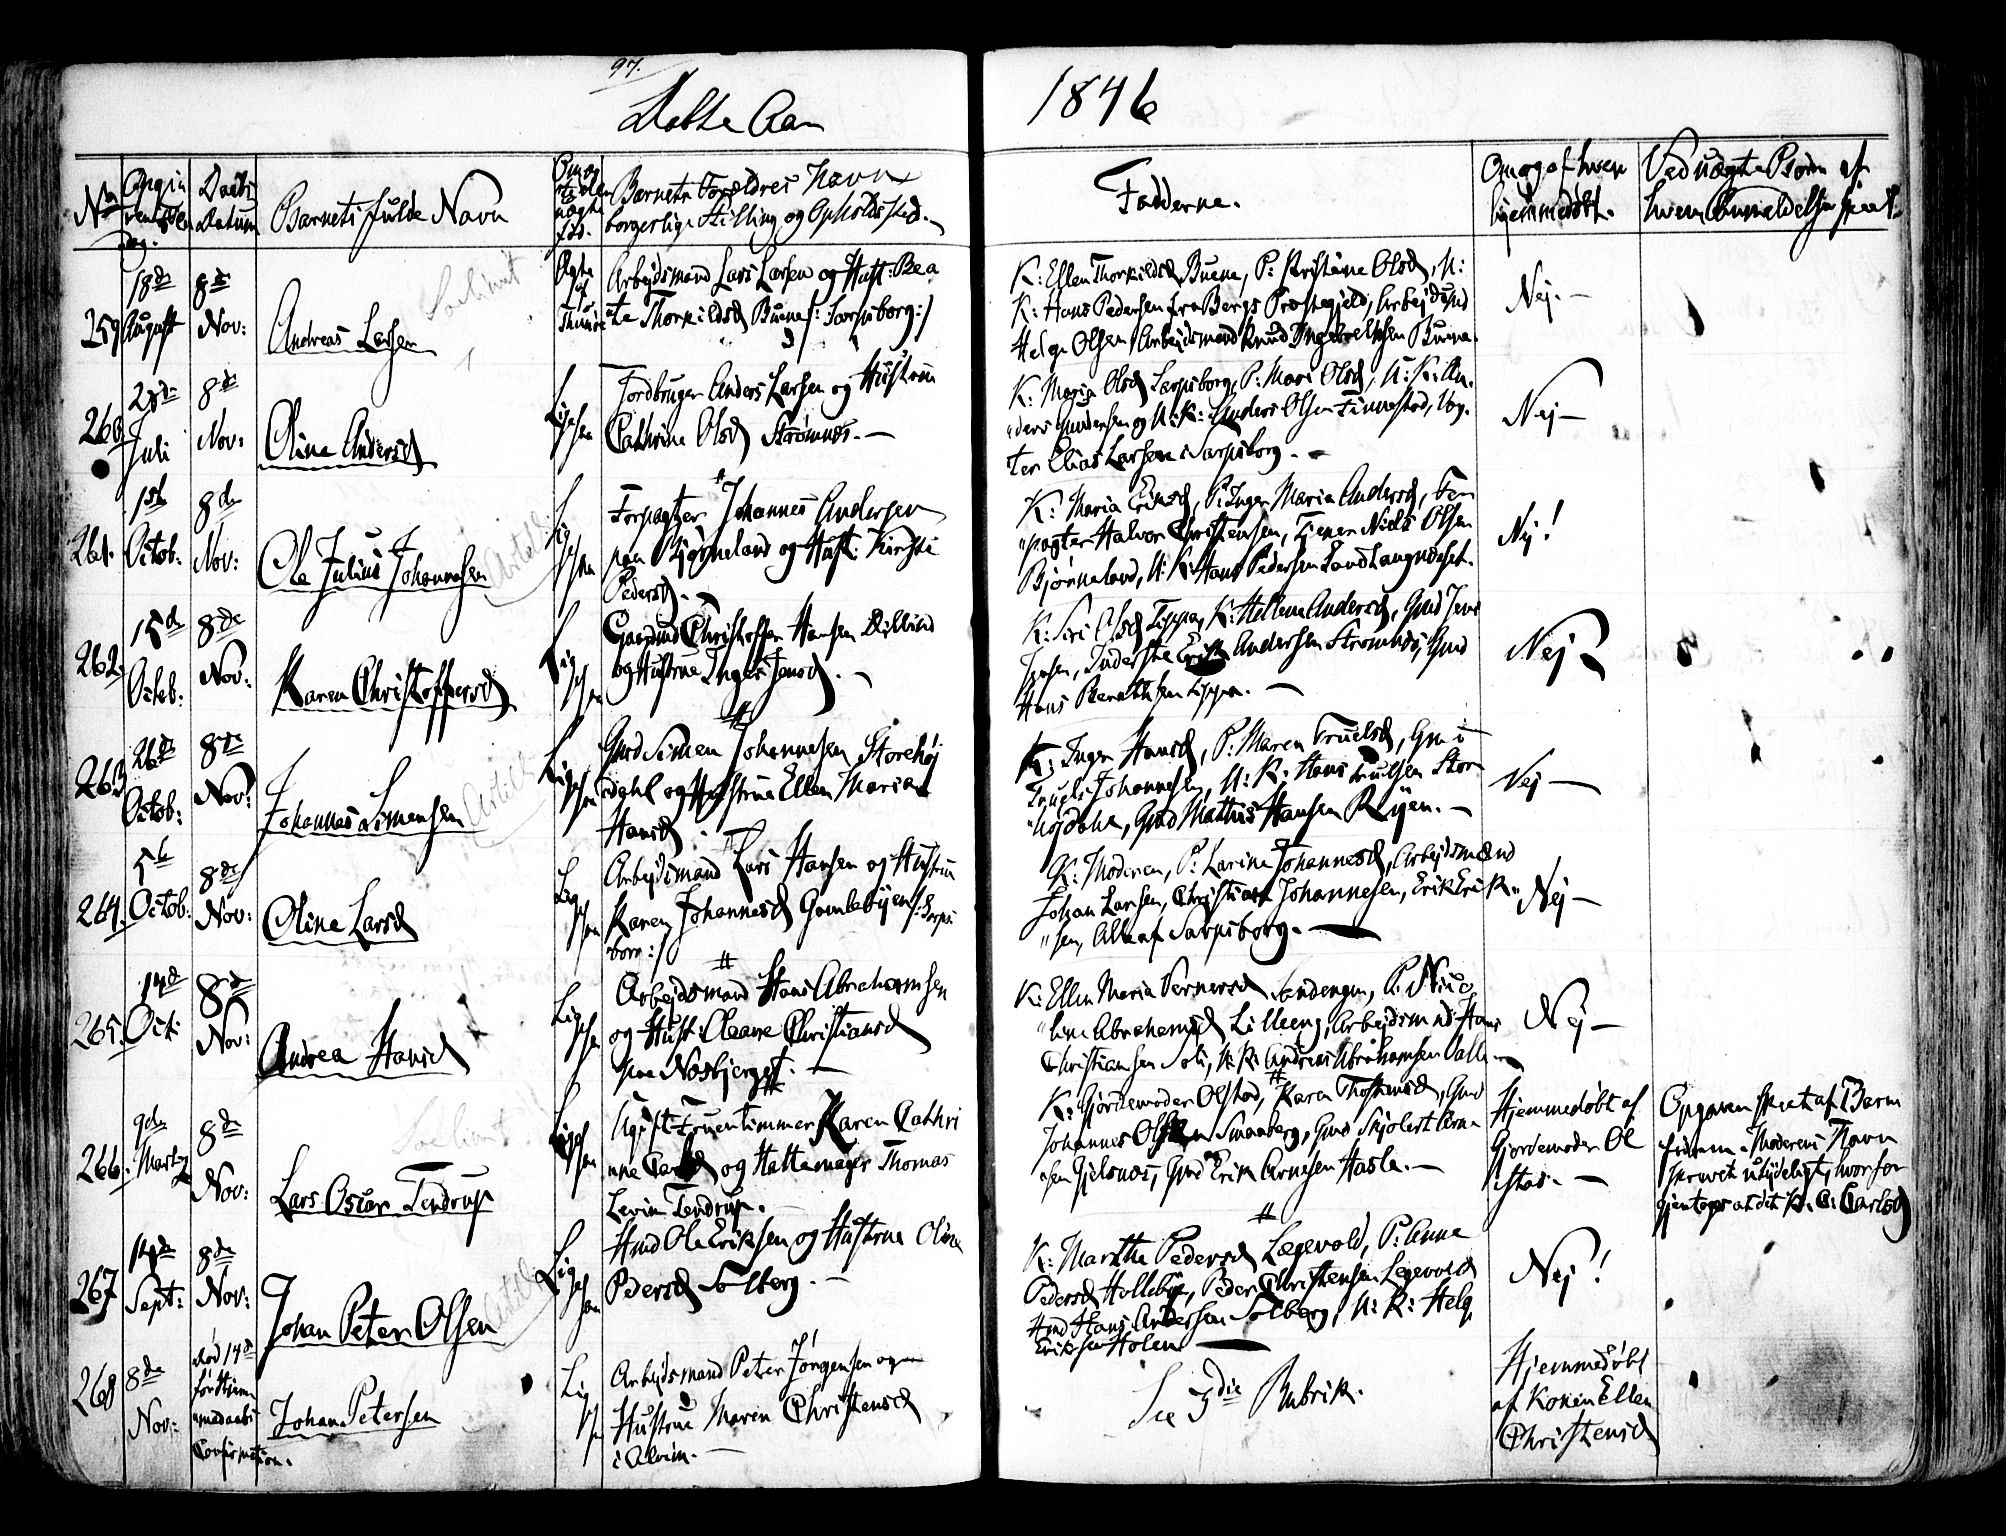 97.
Døbte Aar
1846
No
Angiven fødselsdag.
Daabs Datum
Barnets fulde Navn
Om ægte eller uægte fød.
Barnets Forældres Navn
borgerlige Stilling og Opholdsted.
Fadderne.
Om og af hvem
hjemmedøbt.
Ved uægte Børn af
hvem Anmeldelsen skeet.
259
18de
August
8de
Nov:
Andreas Larsen
Ægte
Arbeidsmand Lars Larsen og Hust: Bea
te Thorkildsd Buene /: Sarpsborg:/
K: Ellen Thorkildsd Buene, P: Kristine Olsd, U:
K: Hans Pedersen fra Bergs Præstegield, Arbeidsmd
Helge Olsen, Arbeidsmand Knud Ingebrethsen Buene.
Nej.—
260
28de
Juli
8de
Nov:
Oline Andersd
Ligesaa
Jordbruger Anders Larsen og Hustrue
Cathrine Olsd Strømnes.—
K: Maria Olsd Sarpsborg, P: Mari Olsd, U: K: An,
"ders Gundersen og U: K: Anders Olsen Finnestad, Vog,
ter Elias Larsen Sarpsborg.—
Nej—
261.
1ste
Octob:
8de
Nov:
Ole Julius Johannesen
Ligesaa
Forpagter Johannes Andersen
paa Bjørneland og Hust: Kirsti
Pedersd.—
K: Maria Eriksd, P: Inger Maria Andersd, For
"pagter Halvor Christensen, Tjener Niels Olsen
Bjørneland, U: K: Hans Pedersen Sand Langnæset.
Nej!
262.
15de
Octob:
8de
Nov:
Karen Christoffersd
Ligesaa
Gaardmd Christoffer Hansen
og Hustrue Inger Jensd.—
K: Siri Olsd Tippen, K: Hellene Andersd, Gmd Jens
Jensen, Inderste Erik Andersen Strømnes, Gmd
Hans Berntsen Tippen.—
Nej
263
26de
Octob:
8de
Nov:
Johannes Simensen
Ligesaa
Gmd Simen Johannesen Storehøj
dahl og Hustrue Ellen Maria
Hansd.
K: Inger Hansd, P: Maren Truelsd, Gm:
Truels Johannesen, U: K: Hans Truelsen Stor
"højdahl, Gmd Mathis Hansen Ryen.—
Nej—
264.
5te
Octob:
8de
Nov:
Oline Larsd
Ligesaa
Arbejdsmand Lars Hansen og Hustrue
Karen Johannesd Gamlebyen /: Sarps
borg:/
K: Moderen, P: Larine Johannesd, Arbejdsmand
Johan Larsen, Christian Johannesen, Erik Erik,
"sen, Alle af Sarpsborg.—
Nej—
265.
14de
Oct:
8de
Nov:
Andrea Hansd
Ligesaa
Arbejdsmand Hans Abrahamsen
og Hust: Oleane Christiansd
paa Nøsbjerget.—
K: Ellen Maria Vernersd Sandengen, P:
"line Abrahamsd Lilleeng, Arbejdsmnd Hans
Christiansen Soli, U: K: Andreas Abrahamsen
Nej—
266.
9de
Marts
8de
Nov:
Lars Oscar Tendrup
Ligesaa
Ugift Fruentimmer Karen Cathri
nne Carlsd og Hattemager Thomas
Levin Tendrup.
K: Gjordemoder Olstad, Karen Thostensd, Gmd
Johannes Olsen Svanberg, Gmd Skjolert Arne
"sen Gjelsnæs, Gmd Erik Arnesen Hasle.—
Hjemmedøbt af
Gjordemoder Ol
stad.—
Opgaven skeet af Barn
fadern. Moderens Navn
skrevet utydeligt, hvorfor
gjentages at det K. C. Carlsd
267
14de
Sept:
8de
Nov:
Johan Peter Olsen
Ligesaa
Hmd Ole Eriksen og Hustrue Oline
Pedersd Solberg.—
K: Marthe Pedersd Lægevold, P: Anne
Pedersd Hollebye, Peder Christensen Legevold
Hmd Hans Andersen Solberg, U: K: Helg
Eriksen Holen
Nej!
268
8de
Nov:
død 14de
før Hjem
medaabs
Confirmation.
Johan Petersen
Lig
Arbejdsmand Peter Jørgensen og
Hustrue Maren Christensd
i Alvim.—
See 3die Rubrik.
Hjemmedøbt
af Konen Ellen
Christensd